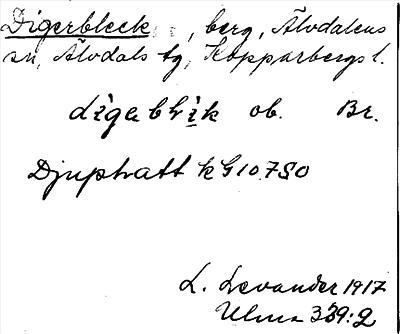 Digerbleck, berg, Älvdalens
sn, Älvdals tg, Kopparbergs l.
digablik ob. Br.
Djuptratt k G 10.7SO
L. Levander 1917
Ulma 339:2